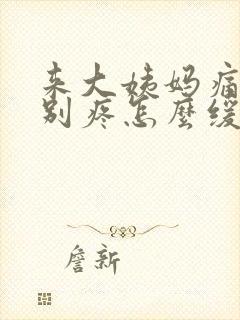 来大姨妈痛
别疼怎麽缓
詹新